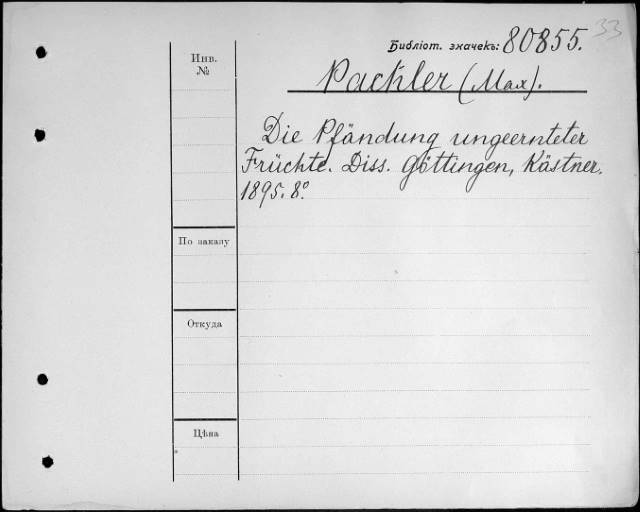 33
Библіот. значекъ: 80855.
Инв.
№
Pachler (Max).
Die Pfändung ungeernteter
Früchte. Diss. Göttingen, Kästner.
1895. 8º
По заказу
Откуда
Цѣна